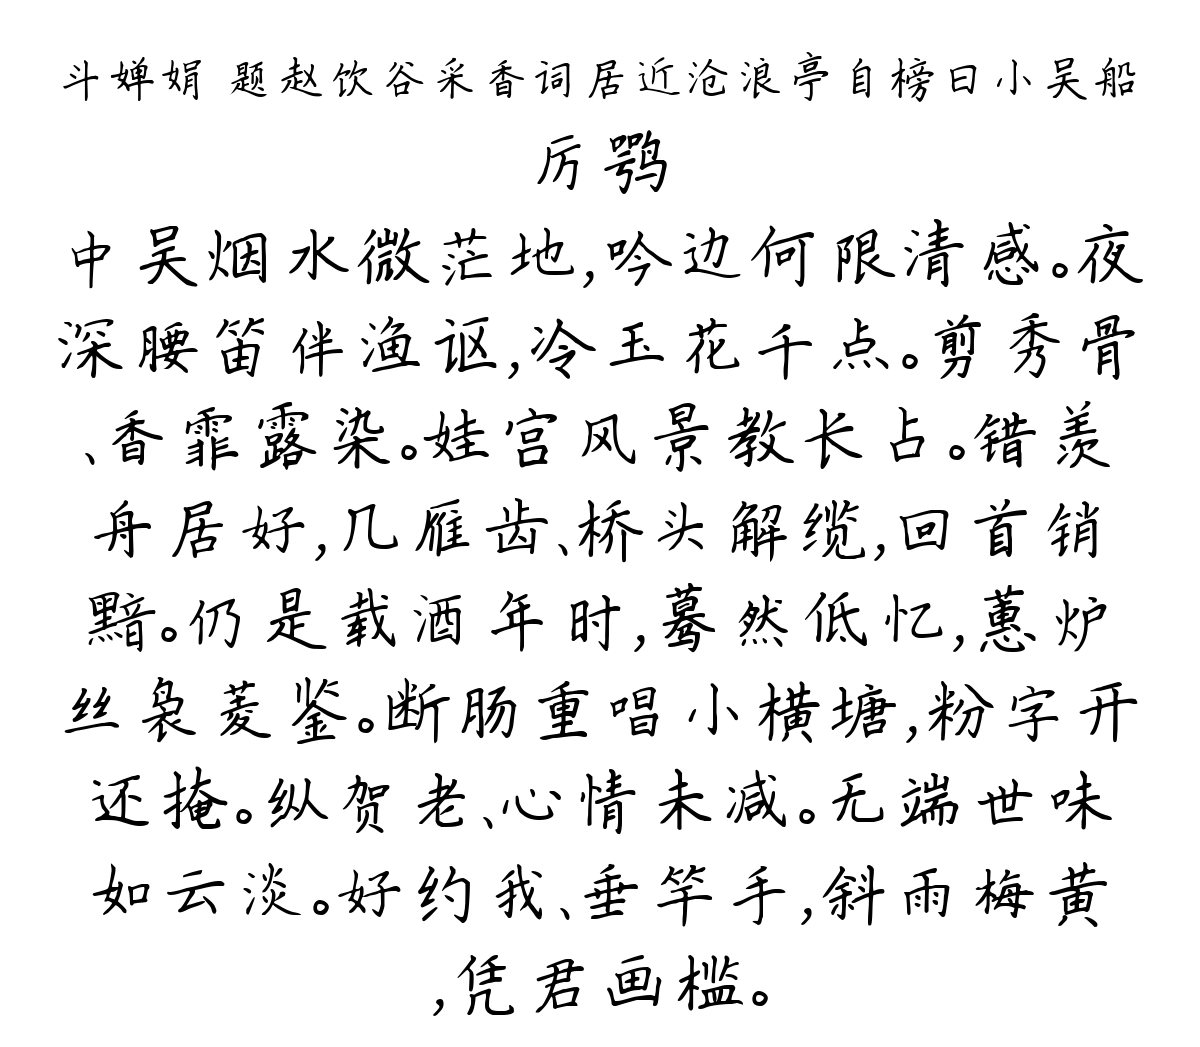 斗婵娟 题赵饮谷采香词居近沧浪亭自榜曰小吴船
厉鹗
中吴烟水微茫地,吟边何限清感。夜
深腰笛伴渔讴,冷玉花千点。剪秀骨
、香霏露染。娃宫风景教长占。错羡
舟居好,几雁齿、桥头解缆,回首销
黯。仍是载酒年时,蓦然低忆,蕙炉
丝袅菱鉴。断肠重唱小横塘,粉字开
还掩。纵贺老、心情未减。无端世味
如云淡。好约我、垂竿手,斜雨梅黄
,凭君画槛。